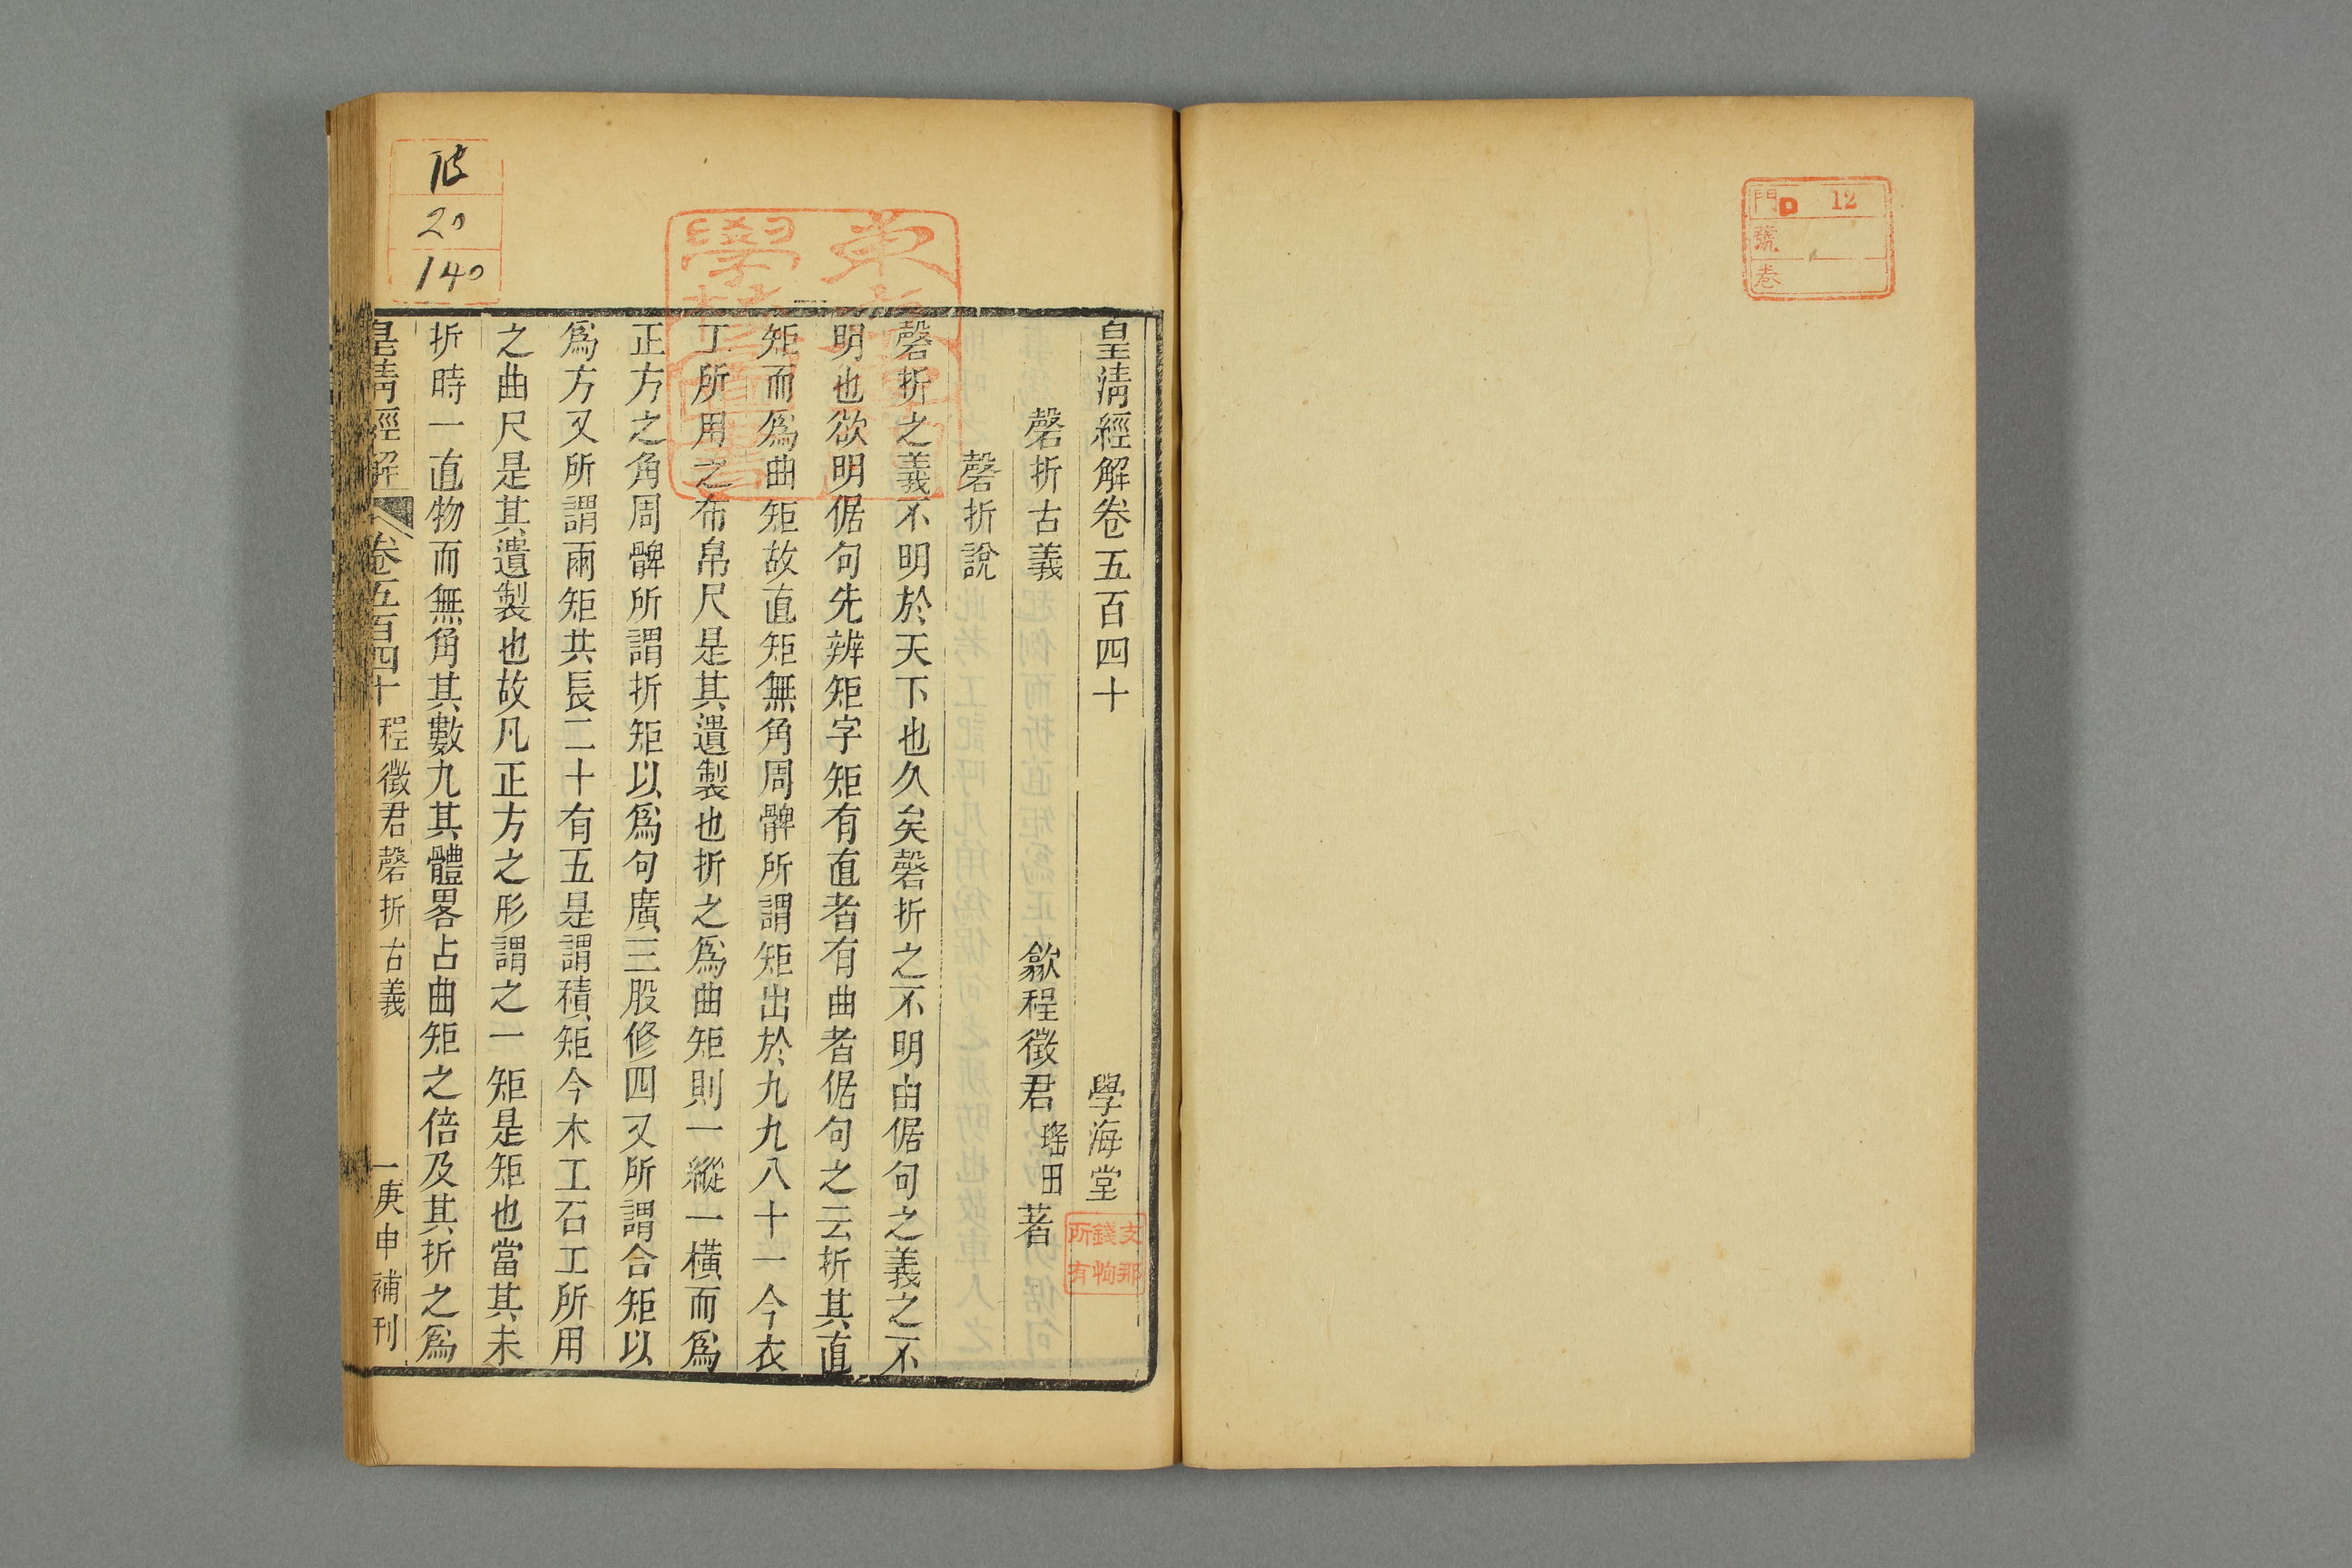 門 D 12
號
卷
皇淸經解卷五百四十 學海堂
支那
錢恂
所有
磬折古義 歙程徵君瑤田著
磬折說
磬折之義不明於天下也久矣磬折之不明由倨句之義之不
明也欲明倨句先辨矩字矩有直者有曲者倨句之云折其直
矩而爲曲矩故直矩無角周髀所謂矩出於九九八十一今衣
工所用之布帛尺是其遺製也折之爲曲矩則一縱一橫而爲
正方之角周髀所謂折矩以爲句廣三股修四又所謂合矩以
爲方又所謂兩矩共長二十有五是謂積矩今木工石工所用
之曲尺是其遺製也故凡正方之形謂之一矩是矩也當其未
折時一直物而無角其數九其體畧占曲矩之倍及其折之爲
皇淸經解 卷五百四十 程徵君磬折古義 一 庚申補刊
20
140